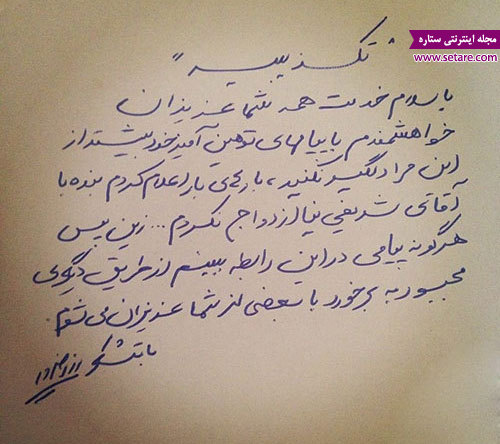 مجله اینترنتی ستاره
www.setare.com
"تکذیبیه"
با سلام خدمت همه شما عزیزان
خواهشمندم با پیامهای توهین آمیز خود بیشتر از
این مرا دلگیر نکنید، بارها اعلام کردم بنده با
آقای شریفی نیا ازدواج نکردم... زین پس
هرگونه پیامی در این رابطه ببینم از طریق دیگری
مجبور به برخورد با بعضی از شما عزیزان می شوم.
با تشکر